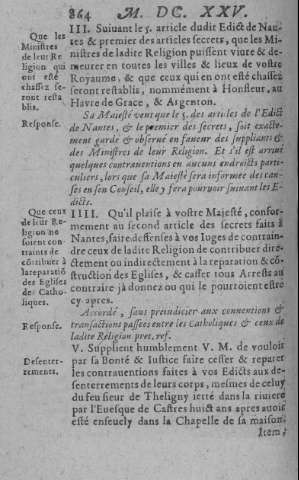 864 M. DC. XXV.
Que les
Ministres
de leur Re
ligion qui
ont esté
chassez se-
ront resta
blis.
III. Suiuant le 5. article dudit Edict de Nan-
tes & premier des articles secrets, que les Mi-
nistres de ladite Religion puissent viure & de-
meurer en toutes les villes & lieux de vostre
Royaume, & que ceux qui en ont esté chassez
seront restablis, nommément à Honfleur, au
Havre de Grace, & Argenton.
Response.
Sa Maiesté veut que le 5. des articles de l'Edict
de Nantes, & le premier des secrets, soit exacte-
ment gardé & obserué en faueur des suppliants &
des Ministres de leur Religion. Et s'il est arriué
quelques contrauentions en aucuns endroicts parti-
culiers, lors que sa Maiesté sera informée des cau-
ses en son Conseil, elle y fera pouruoir suiuant les E-
dicts.
Que ceux
de leur Re-
ligion ne
soient con-
traints de
cõtribuer à
la reparatiõ
des Eglises
des Catho-
liques.
IIII. Qu'il plaise à vostre Majesté, confor-
mement au second article des secrets faits à
Nantes, faire deffenses à vos Iuges de contrain-
dre ceux de ladite Religion de contribuer dire-
ctement ou indirectement à la reparation & cõ-
struction des Eglises, & casser tous Arrests au
contraire jà donnez ou qui le pourroient estre
cy-apres.
Response.
Accordé, sans preiudicier aux conuentions &
transactions passées entre les Catholiques & ceux de
ladite Religion pret. ref.
Desenter-
rements.
V. Supplient humblement V. M. de vouloir
par sa Bonté & Iustice faire cesser & reparer
les contrauentions faites à vos Edicts aux des-
enterrements de leurs corps, mesmes de celuy
du feu sieur de Theligny ietté dans la riuiere
par l'Euesque de Castres huict ans apres auoir
esté enseuely dans la Chapelle de sa maison.
Item,